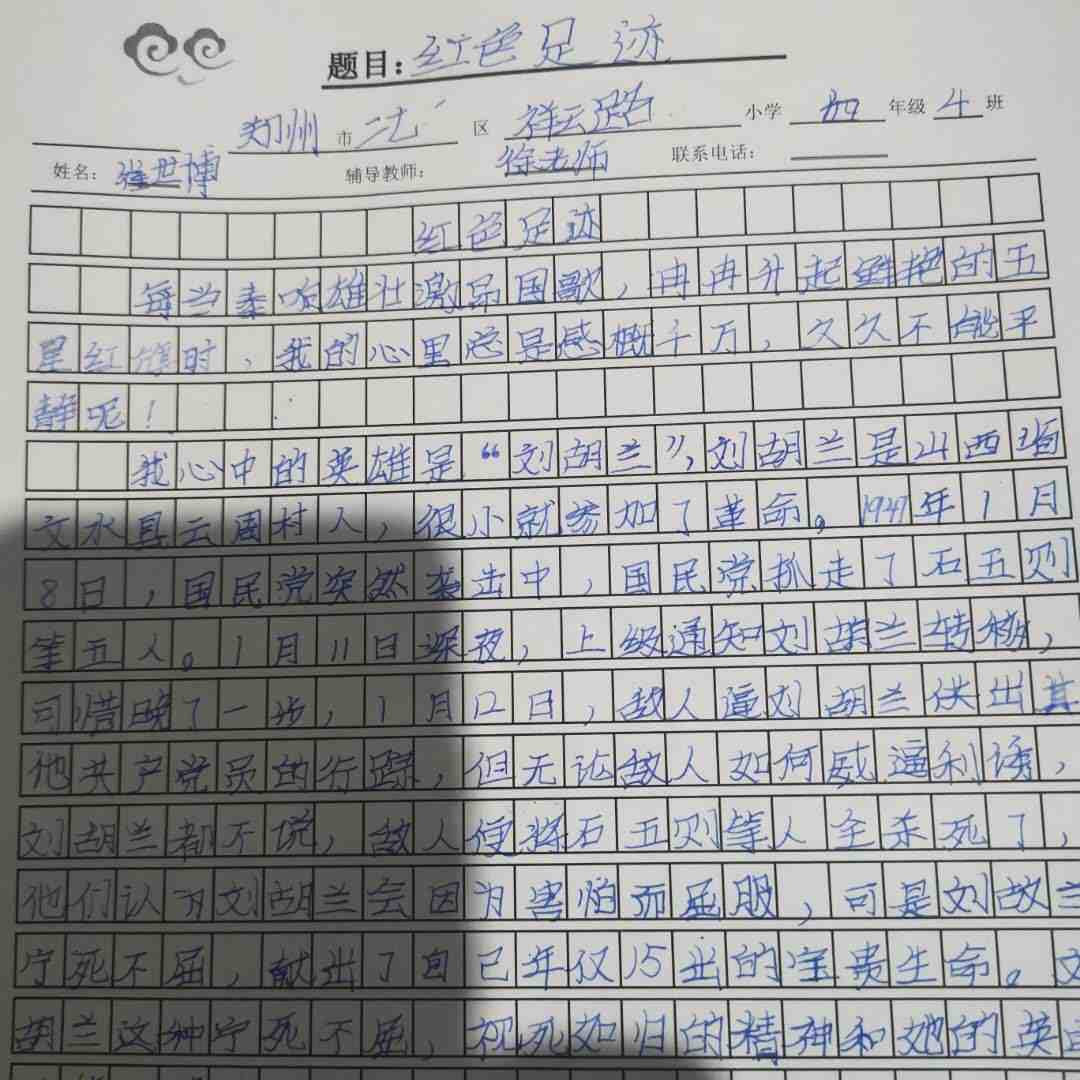 题目：红色足迹
郑州市二七区祥云路小学四年级4班
姓名：张世博 辅导教师：徐老师 联系电话：
红色足迹
每当奏响雄壮激昂国歌，冉冉升起鲜艳的五
星红旗时，我的心里总是感概千万，久久不能平
静呢！
我心中的英雄是“刘胡兰”，刘胡兰是山西省
文水县云周村人，很小就参加了革命。1947年1月
8日，国民党突然袭击中，国民党抓走了石五则
等五人。1月11日深夜，上级通知刘胡兰转移，
可惜晚了一步，1月12日，敌人逼刘胡兰供出其
他共产党员的行踪，但无论敌人如何威逼利诱，
刘胡兰都不说，敌人便将石五则等人全杀死了，
他们认为刘胡兰会因为害怕而屈服，可是刘故兰
宁死不屈，献出了自己年仅15岁的宝贵生命。
胡兰这种宁死不屈，视死如归的精神和她的英